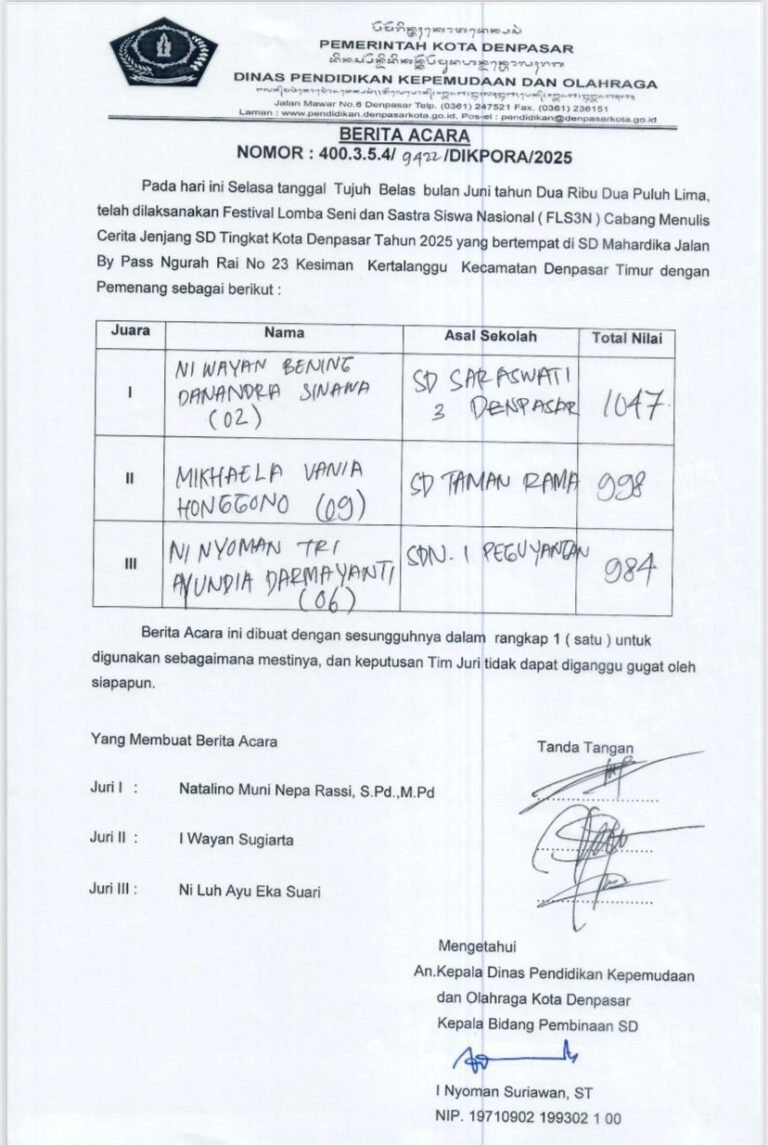 PEMERINTAH KOTA DENPASAR
DINAS PENDIDIKAN KEPEMUDAAN DAN OLAHRAGA
Jalan Mawar No.6 Denpasar Telp. (0361) 247521 Fax. (0361) 236151
Laman : www.pendidikan.denpasarkota.go.id, Pos-el : pendidikan@denpasarkota.go.id
BERITA ACARA
NOMOR : 400.3.5.4/ 9422 /DIKPORA/2025
Pada hari ini Selasa tanggal Tujuh Belas bulan Juni tahun Dua Ribu Dua Puluh Lima,
telah dilaksanakan Festival Lomba Seni dan Sastra Siswa Nasional ( FLS3N ) Cabang Menulis
Cerita Jenjang SD Tingkat Kota Denpasar Tahun 2025 yang bertempat di SD Mahardika Jalan
By Pass Ngurah Rai No 23 Kesiman Kertalanggu Kecamatan Denpasar Timur dengan
Pemenang sebagai berikut :
Juara Nama Asal Sekolah Total Nilai
I NI WAYAN BENING DANANDRA SINAWA (02) SD SARASWATI 3 DENPASAR 1047
II MIKHAELA VANIA HONGGONO (09) SD TAMAN RAMA 998
III NI NYOMAN TRI AYUNDIA DARMAYANTI (06) SDN. 1 PEGUYANGAN 984
Berita Acara ini dibuat dengan sesungguhnya dalam rangkap 1 ( satu ) untuk
digunakan sebagaimana mestinya, dan keputusan Tim Juri tidak dapat diganggu gugat oleh
siapapun.
Yang Membuat Berita Acara Tanda Tangan
Juri I : Natalino Muni Nepa Rassi, S.Pd.,M.Pd
Juri II : I Wayan Sugiarta
Juri III : Ni Luh Ayu Eka Suari
Mengetahui
An.Kepala Dinas Pendidikan Kepemudaan
dan Olahraga Kota Denpasar
Kepala Bidang Pembinaan SD
I Nyoman Suriawan, ST
NIP. 19710902 199302 1 00